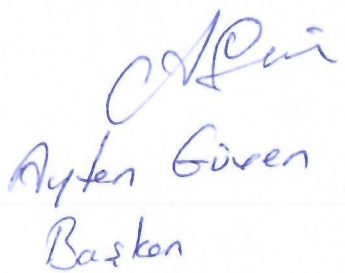 Ayten Güven
Başkan